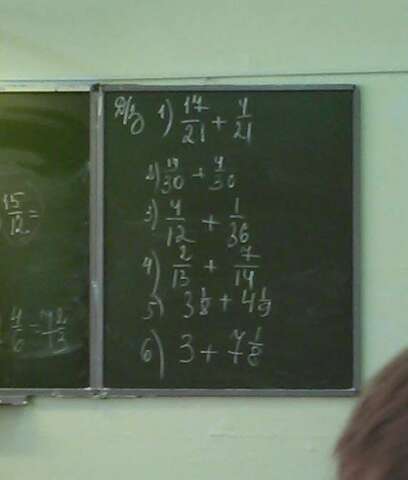 15/12 =
4/6 = 7 2/3
Д/з 1) 14/21 + 4/21
2) 19/30 + 4/30
3) 4/12 + 1/36
4) 2/13 + 7/14
5) 3 1/8 + 4 1/9
6) 3 + 7 1/8